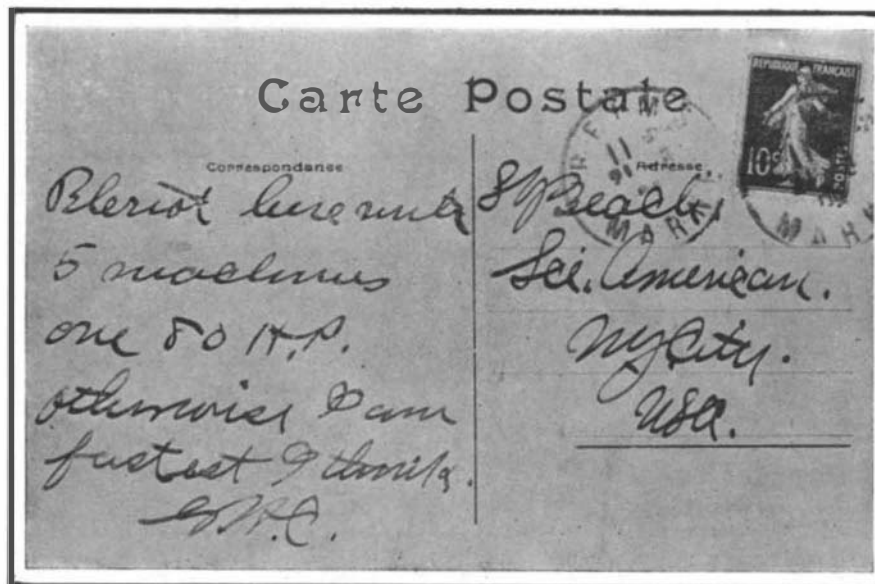 Carte Postale
Correspondance
Bleriot here with
5 machines
one 80 H.P.
otherwise I am
fastest I think.
G.H.C.
Adresse
S Y Beach,
Sci. American.
NY City.
USA.
REPUBLIQUE FRANÇAISE
10c
POSTES
REIMS
11
MARNE
MAR